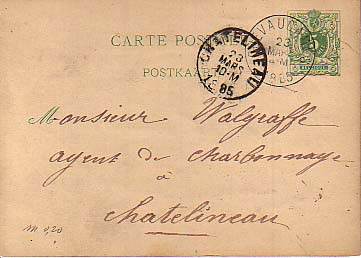 CARTE POS
POSTKAA
CHATELINEAU
23
MARS
10-M
85
VAUX
23
MAR
5
Monsieur Walgraffe
agent de charbonnage
à
Chatelineau